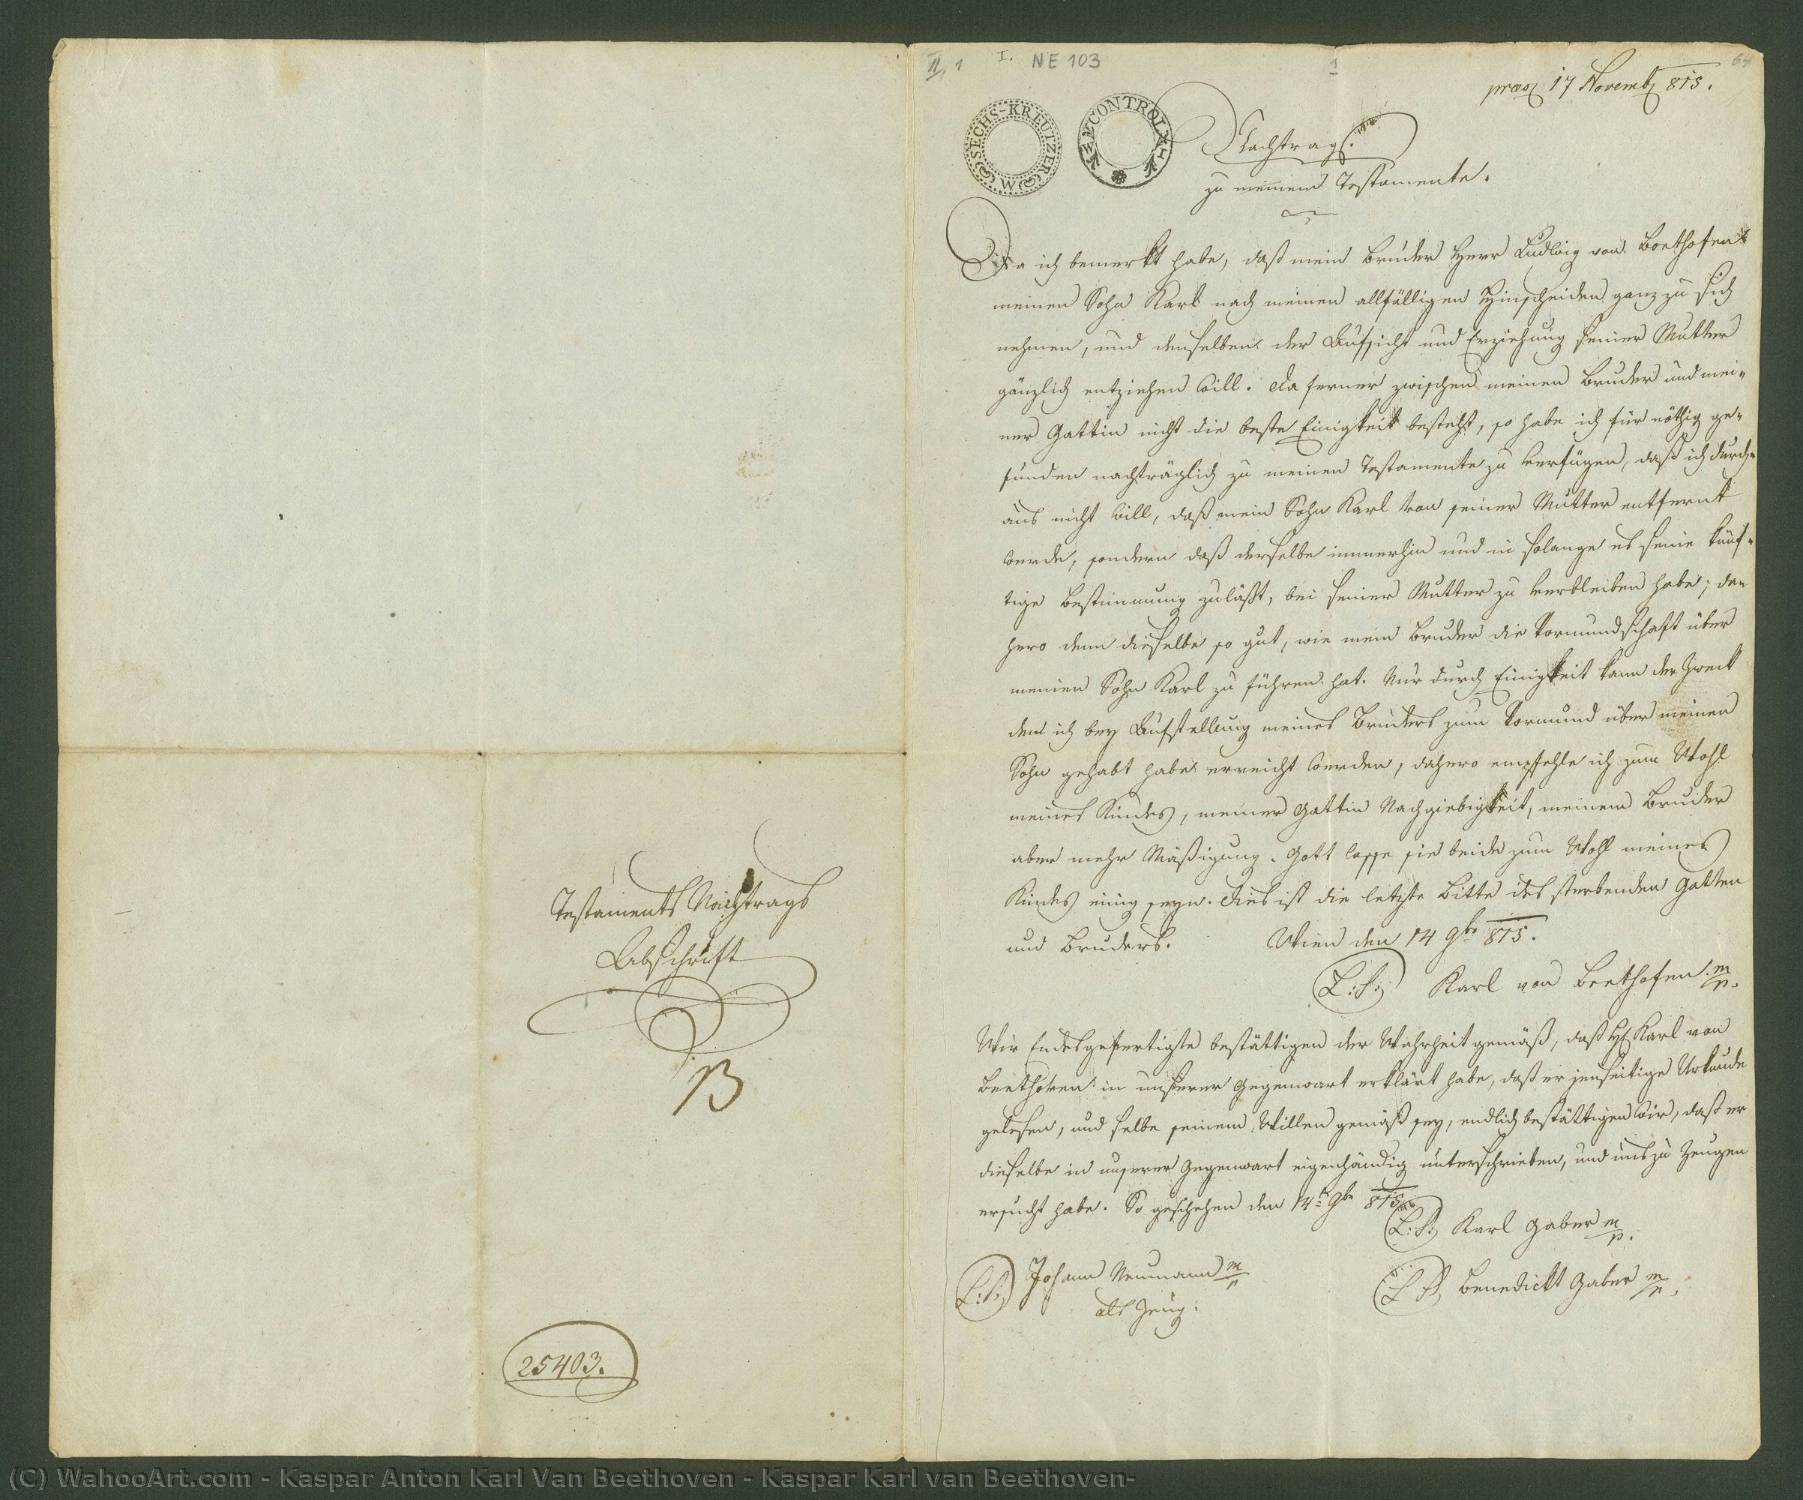 Testaments Nachtrags
Abschrift
B
25403.
II, 1
I.
NE 103
1
64
praes 17 Novemb 815.
SECHS-KREUTZER
W
W:W:CONTROL
Nachtrag
zu meinem Testamente.
Da ich bemerkt habe, daß mein Bruder Herr Ludwig van Beethofen
meinen Sohn Karl nach meinen allfälligen Hinscheiden ganz zu sich
nehmen, und denselben der Aufsicht und Erziehung seiner Mutter
gänzlich entziehen will. da ferner zwischen meinen Bruder und mei-
ner Gattin nicht die beste Einigkeit besteht, so habe ich für nöthig ge-
funden nachträglich zu meinen Testamente zu verfügen, daß ich durch-
aus nicht will, daß mein Sohn Karl von seiner Mutter entfernt
werde, sondern daß derselbe immerhin und in solange es seine künf-
tige Bestimmung zuläßt, bei seiner Mutter zu verbleiben habe; da-
hero denn dieselbe so gut, wie mein Bruder die Vormundschaft über
meinen Sohn Karl zu führen hat. Nur durch Einigkeit kann der Zweck
den ich bey Aufstellung meines Bruders zum Vormund über meinen
Sohn gehabt habe erreicht werden, dahero empfehle ich zum Wohl
meines Kindes, meiner Gattin Nachgiebigkeit, meinem Bruder
aber mehr Mäßigung. Gott lasse sie beide zum Wohl meines
Kindes einig seyn. Dies ist die letzte Bitte des sterbenden Gatten
und Bruders. Wien den 14 9br 815.
(L:S:) Karl van Beethofen m/p.
Wir Endesgefertigte bestättigen der Wahrheit gemäß, daß H Karl van
Beethoven in unserer Gegenwart erklärt habe, daß er jenseitige Urkunde
gelesen, und selbe seinem Willen gemäß sey, endlich bestättigen wir, daß er
dieselbe in unserer Gegenwart eigenhändig unterschrieben, und uns zu Zeugen
ersucht habe. So geschehen den 14 9br 815.
(L:S:) Karl Gaber m/p.
(L:S:) Johann Neumann m/p
(L S) Benedickt Gaber m/p.
als Zeug:
(C) WahooArt.com - Kaspar Anton Karl Van Beethoven - Kaspar Karl van Beethoven-